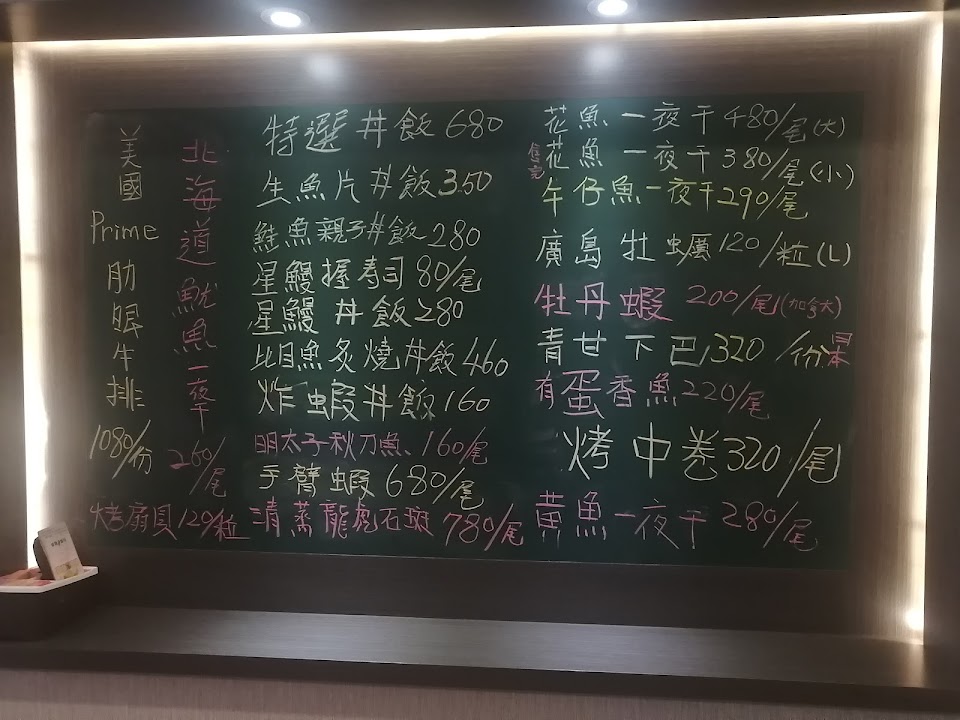 美國Prime肋眼牛排1080/份
北海道魷魚一夜干260/尾
烤扇貝120/粒
特選丼飯680
生魚片丼飯350
鮭魚親子丼飯280
星鰻握寿司80/尾
星鰻丼飯280
比目魚炙燒丼飯460
炸蝦丼飯160
明太子秋刀魚160/尾
手臂蝦680/尾
清蒸龍虎石斑780/尾
花魚一夜干480/尾(大)
售完
花魚一夜干380/尾(小)
午仔魚一夜干290/尾
廣島牡蠣120/粒(L)
牡丹蝦200/尾(加拿大)
青甘下巴320/份日本
有蛋香魚220/尾
烤中卷320/尾
黃魚一夜干280/尾